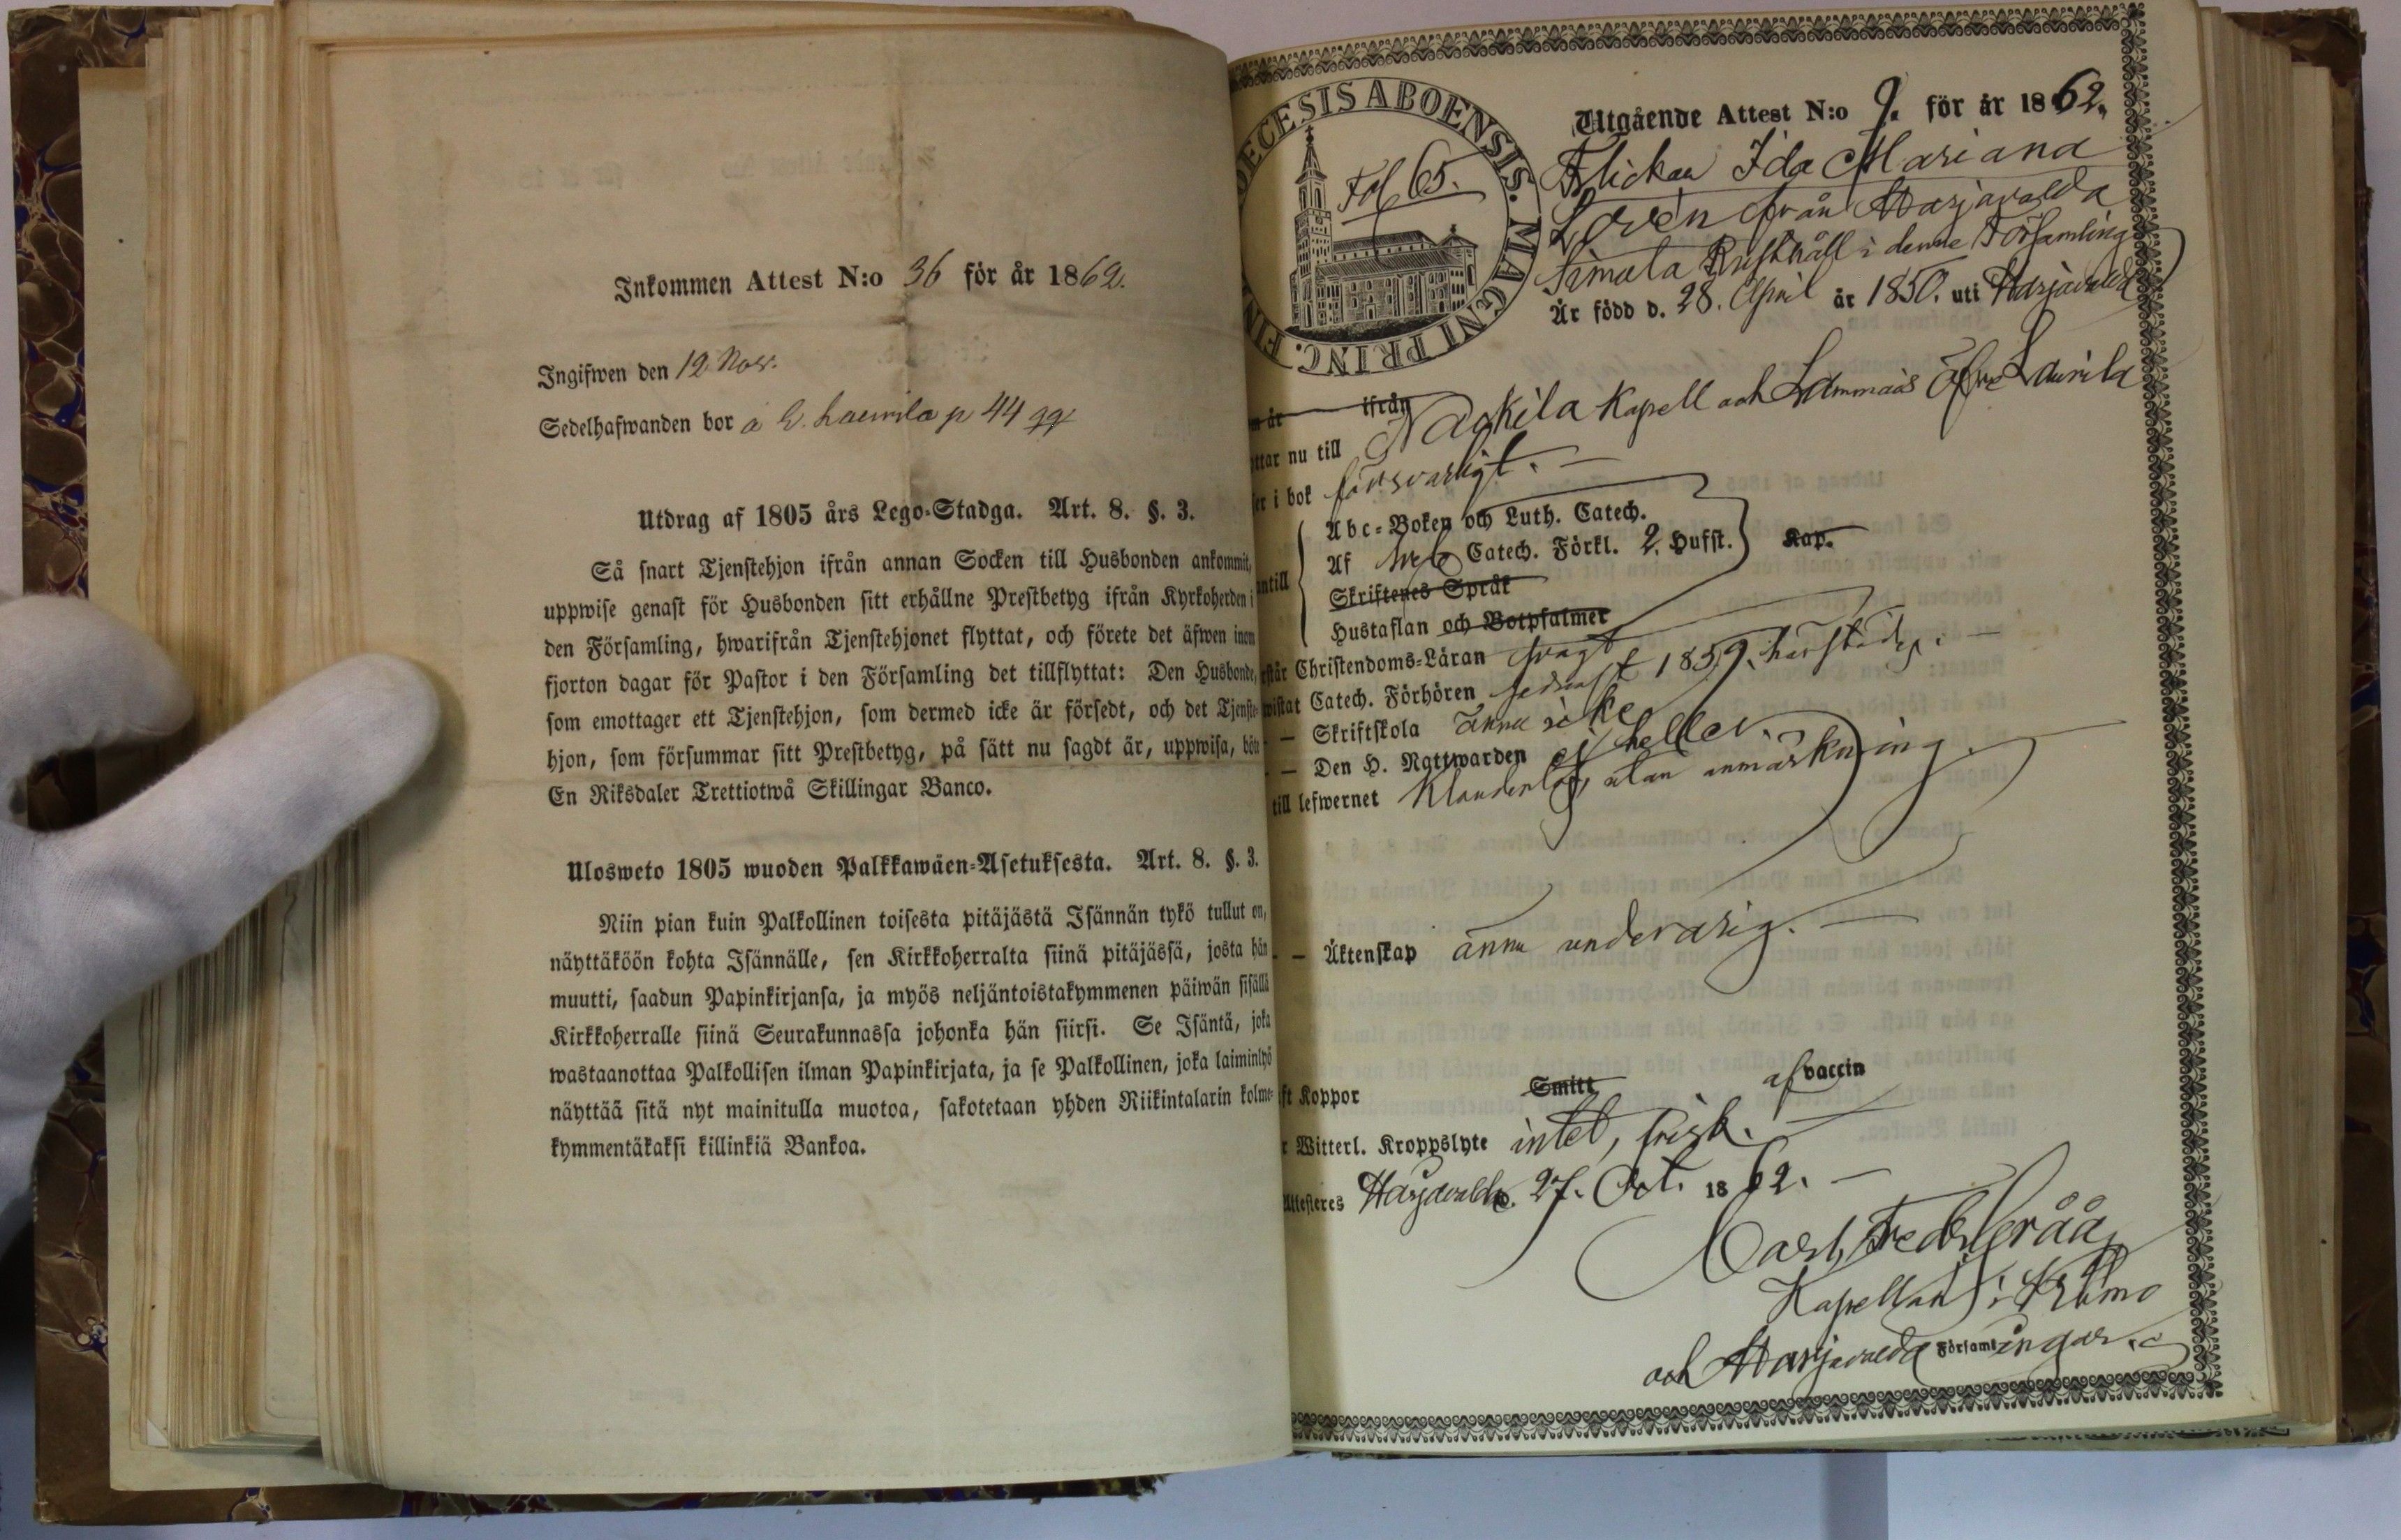 Inkommen Attest N:o 36 för år 1862.
Ingifwen den 12 Nov.
Sedelhafwanden bor å Ö. Laurila p 44
Utdrag af 1805 års Lego-Stadga. Art. 8. §. 3.
Så snart Tjenstehjon ifrån annan Socken till Husbonden ankommit,
uppwise genast för Husbonden sitt erhållne Prestbetyg ifrån Kyrkoherden i
den Församling, hwarifrån Tjenstehjonet flyttat, och förete det äfwen inom
fjorton dagar för Pastor i den Församling det tillflyttat: Den Husbonde,
som emottager ett Tjenstehjon, som dermed icke är försedt, och det Tjenste-
hjon, som försummar sitt Prestbetyg, på sätt nu sagdt är, uppwisa, böte
En Riksdaler Trettiotwå Skillingar Banco.
Ulosweto 1805 wuoden Palkkawäen-Asetuksesta. Art. 8. §. 3.
Niin pian kuin Palkollinen toisesta pitäjästä Isännän tykö tullut on,
näyttäköön kohta Isännälle, sen Kirkkoherralta siinä pitäjässä, josta hän
muutti, saadun Papinkirjansa, ja myös neljäntoistakymmenen päiwän sisällä
Kirkkoherralle siinä Seurakunnassa johonka hän siirsi. Se Isäntä, joka
wastaanottaa Palkollisen ilman Papinkirjata, ja se Palkollinen, joka laiminlyö
näyttää sitä nyt mainitulla muotoa, sakotetaan yhden Riikintalarin kolme-
kymmentäkaksi killinkiä Bankoa.
OECESIS ABOENSIS. MAGNI PRINC. FIN
Fol 65.
Utgående Attest N:o 9. för år 1862.
Flickan Ida Mariana
Lovén från Harjavalda
Simola Rusthåll i denne Församling
Är född d. 28. April år 1850. uti Harjavalda
m är ifrån
ttar nu till Nackila Kapell och Lammais Öfre Laurila
er i bok försvarligt.
Abc-Boken och Luth. Catech.
Af Catech. Förkl. 2. Hufst. Kap.
ntill
Skriftenes Språk
Hustaflan och Botpsalmer
rstår Christendoms-Läran svagt
wistat Catech. Förhören sednast 1859. härstädes.
— Skriftskola ännu icke
— Den H. Nattwarden ej heller.
till lefwernet Klanderlös, utan anmärkning.
— Äktenskap ännu underårig.
ft Koppor Smitt af vaccin
r Witterl. Kroppslyte intet, frisk.
Attesteres Harjavalda. 27. Oct. 1862.
Carl Fredr Gråå
Kapellan i Kumo
och Harjavalda Församlingar.